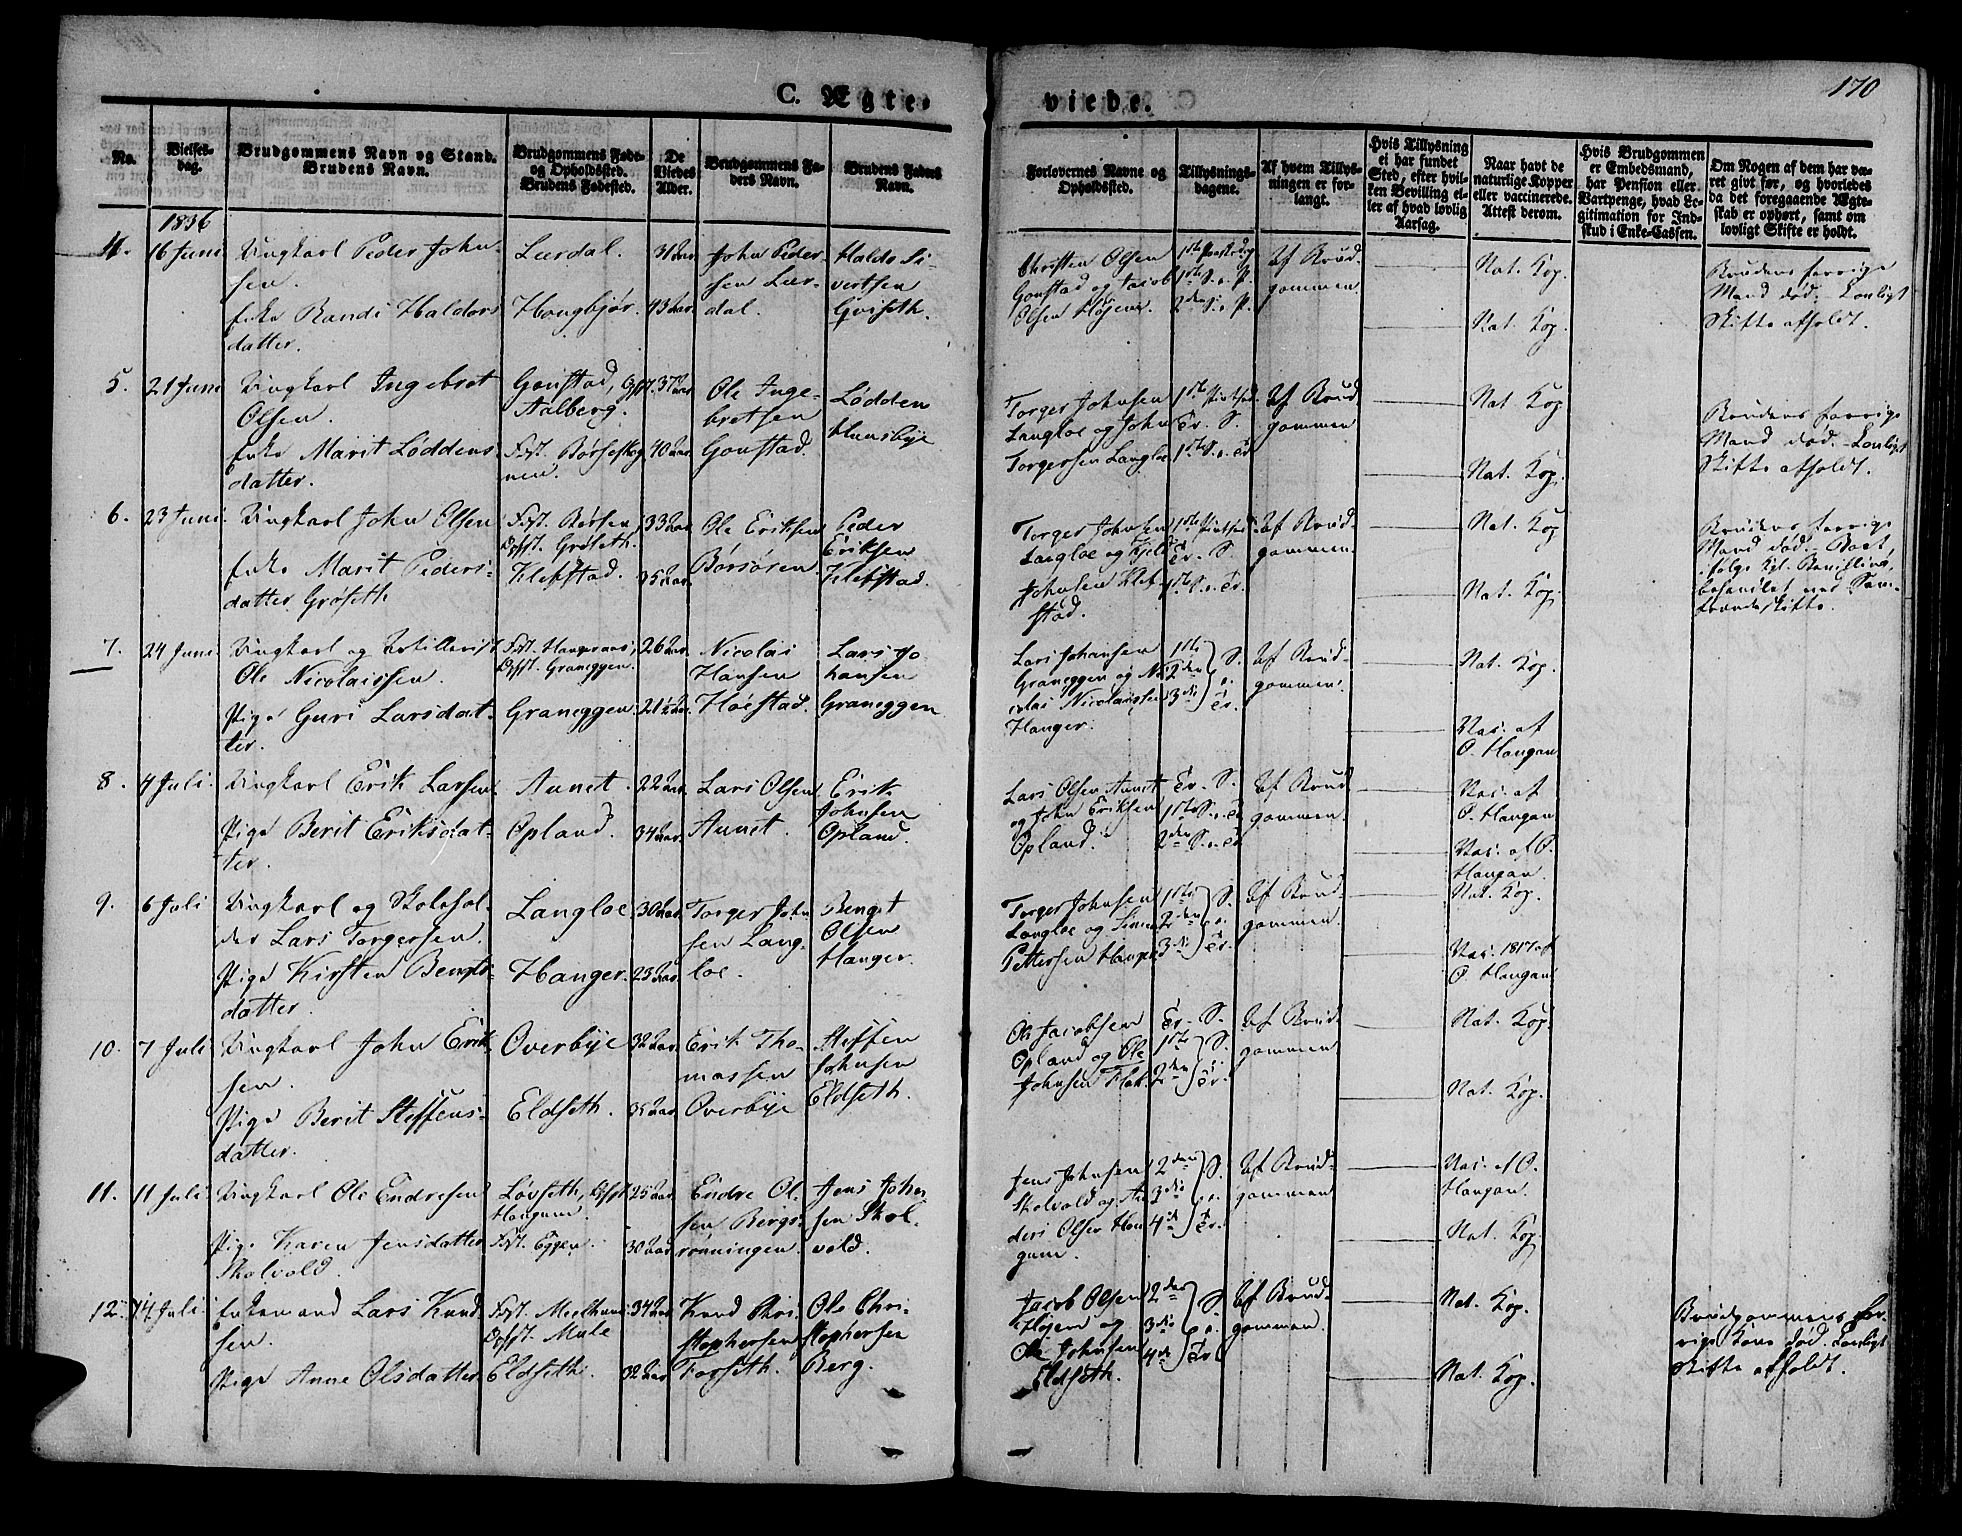 170
C. Ægte-
viede.
No.
Vielses-
dag.
Brudgommens Navn og Stand.
Brudens Navn.
Brudgommens Føde-
og Opholdssted.
Brudens Fødested.
De
Viedes
Alder.
Brudgommens Fa-
ders Navn.
Brudens Faders
Navn.
Forlovernes Navne og
Opholdssted.
Tillysnings-
dagene.
Af hvem Tillys-
ningen er for-
langt.
Hvis Tillysning
ei har fundet
Sted, efter hvil-
ken Bevilling el-
ler af hvad lovlig
Aarsag.
Naar havt de
naturlige Kopper
eller vaccinerede.
Attest derom.
Hvis Brudgommen
er Embedsmand,
har Pension eller
Vartpenge, hvad Le-
gitimation for Ind-
skud i Enke-Cassen.
Om Nogen af dem har væ-
ret givt før, og hvorledes
da det foregaaende Ægte-
skab er ophørt, samt om
lovligt Skifte er holdt.
1836
4. 16 Juni
Ungkarl Peder John-
sen.
Enke Randi Haldors
datter.
Lerdal.
Hongbjør.
31 Aar
43 Aar
John Peder-
sen Lær-
dal.
Haldo Si-
vertsen
Gviseth.
Christen Olsen
Gonstad og Jacob
Olsen Højem.
Af Brud-
gommen.
Nat. Kop.
Nat. Kop.
Brudens forrige
Mand død. Lovligt
Skifte afholdt.
5. 21 Juni
Ungkarl Ingebret
Olsen.
Enke Marit Løddens
datter.
Gonstad, Opst.
Aalberg.
Født. Børseskog
nen.
37 Aar
40 Aar
Ole Inge-
bretsen
Gonstad.
Lødden
Hunsbye
Torger Johnsen
Langloe og John
Torgersen Langloe
Af Brud
gommen
Nat. Kop
Nat. Kop
Brudens forrige
Mand død. Lovligt
Skifte afholdt.
6. 23 Juni.
Ungkarl John Olsen
Enke Marit Peders-
datter Grøseth
Født. Børsen,
Opst. Grøseth.
Klefstad.
33 Aar
35 Aar
Ole Eriksen
Børsøren.
Peder
Eriksen
Klefstad.
Torger Johnsen
Langloe og Kjeld
Johnsen Klef-
stad.
Af Brud-
gommen.
Nat. Kop
Nat. Kop.
Brudens forrige
Mand død. Boet,
ifølge Kgl. Bevilling,
behandlet ved Sam-
frændeskifte.
7. 24 Juni
Ungkarl og Artillerist
Ole Nicolaissen.
Pige Guri Larsdat-
ter.
Opst. Graneggen.
Graneggen.
26 Aar
21½ Aar.
Nicolai
Hansen
Høistad.
Lars Jo-
hansen
Graneggen
Lars Johansen
Graneggen og Ni-
colai Nicolaissen
Hanger.
1ste
2den
3die
S.
e.
Tr.
Af Brud-
gommen.
Nat. Kop.
Vac. af
O. Haugan
8. 4 Juli.
Ungkarl Erik Larsen
Pige Berit Eriksdat-
ter.
Aunet.
Opland.
22 Aar
34 Aar.
Lars Olsen
Aunet.
Erik
Johnsen
Opland.
Lars Olsen Aunet
og John Eriksen
Opland.
Tr. S.
1ste S. e. Tr
2den S. e. Tr
Af Brud
gommen.
Vac. af
O. Haugan
Vac. af O.
Haugan.
9. 6 Juli
Ungkarl og Skolehol-
der Lars Torgersen.
Pige Kirsten Bengts-
datter.
Langloe
Hanger.
30 Aar.
23 Aar
Torger John
sen Lang-
loe.
Bengt
Olsen
Hanger.
Torger Johnsen
Langloe og Simen
Pettersen Hanger
1ste
2den
3die
S.
e.
Tr.
Af Brud-
gommen.
Nat. Kop.
Vac. 1817 af
O. Haugan
10. 7 Juli
Ungkarl John Erik-
sen.
Pige Berit Steffens-
datter.
Overbye
Eldseth.
32 Aar.
35 Aar.
Erik Tho-
massen
Overbye
Steffen
Johnsen
Eldseth.
Ole Jacobsen
Opland og Ole
Johnsen Flak.
Tr. S.
1ste
2den
S.
e.
Tr.
Af Brud-
gommen
Nat. Kop.
Nat. Kop.
11. 11 Juli.
Ungkarl Ole Endresen
Pige Karen Jensdatter
Skolvold.
Løvseth, Opst
Haugum.
Født. Eggen.
25 Aar
30 Aar
Endre Ol-
sen Bergs-
rønningen.
Jens John-
sen Skol-
vold.
Jens Johnsen
Skolvold og An-
ders Olsen Hau
gum.
2den
3die
4de
S.
e.
Tr.
Af Brud-
gommen
Vac. af O.
Haugan.
Nat. Kop.
12. 14 Juli.
Enkemand Lars Knud
sen.
Pige Anne Olsdatter
Født. Meelhuus
Opst. Mule
Eldseth.
34 Aar
32 Aar
Knud Chri-
stophersen
Forseth.
Ole Chri-
stophersen
Berg.
Jacob Olsen
Højem og
Ole Johnsen
Eldseth.
2den
3die
4de
S.
e.
Tr
Af Brud-
gommen.
Nat. Kop.
Nat. Kop.
Brudgommens for-
rige Kone død. Lovligt
Skifte afholdt.